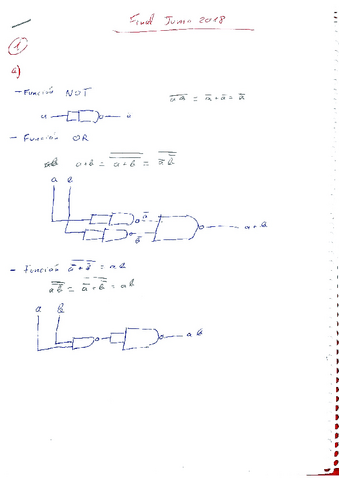 Final Junio 2018
1
a)
- Función NOT
a a̅ a̅a̅ = a̅ + a̅ = a̅
- Función OR
a+b = a̿+̿b̿ = a̅ b̅
a b
a̅
b̅
a+b
- Función = ab
ab = a̅ + b̅ = ab
a b
ab